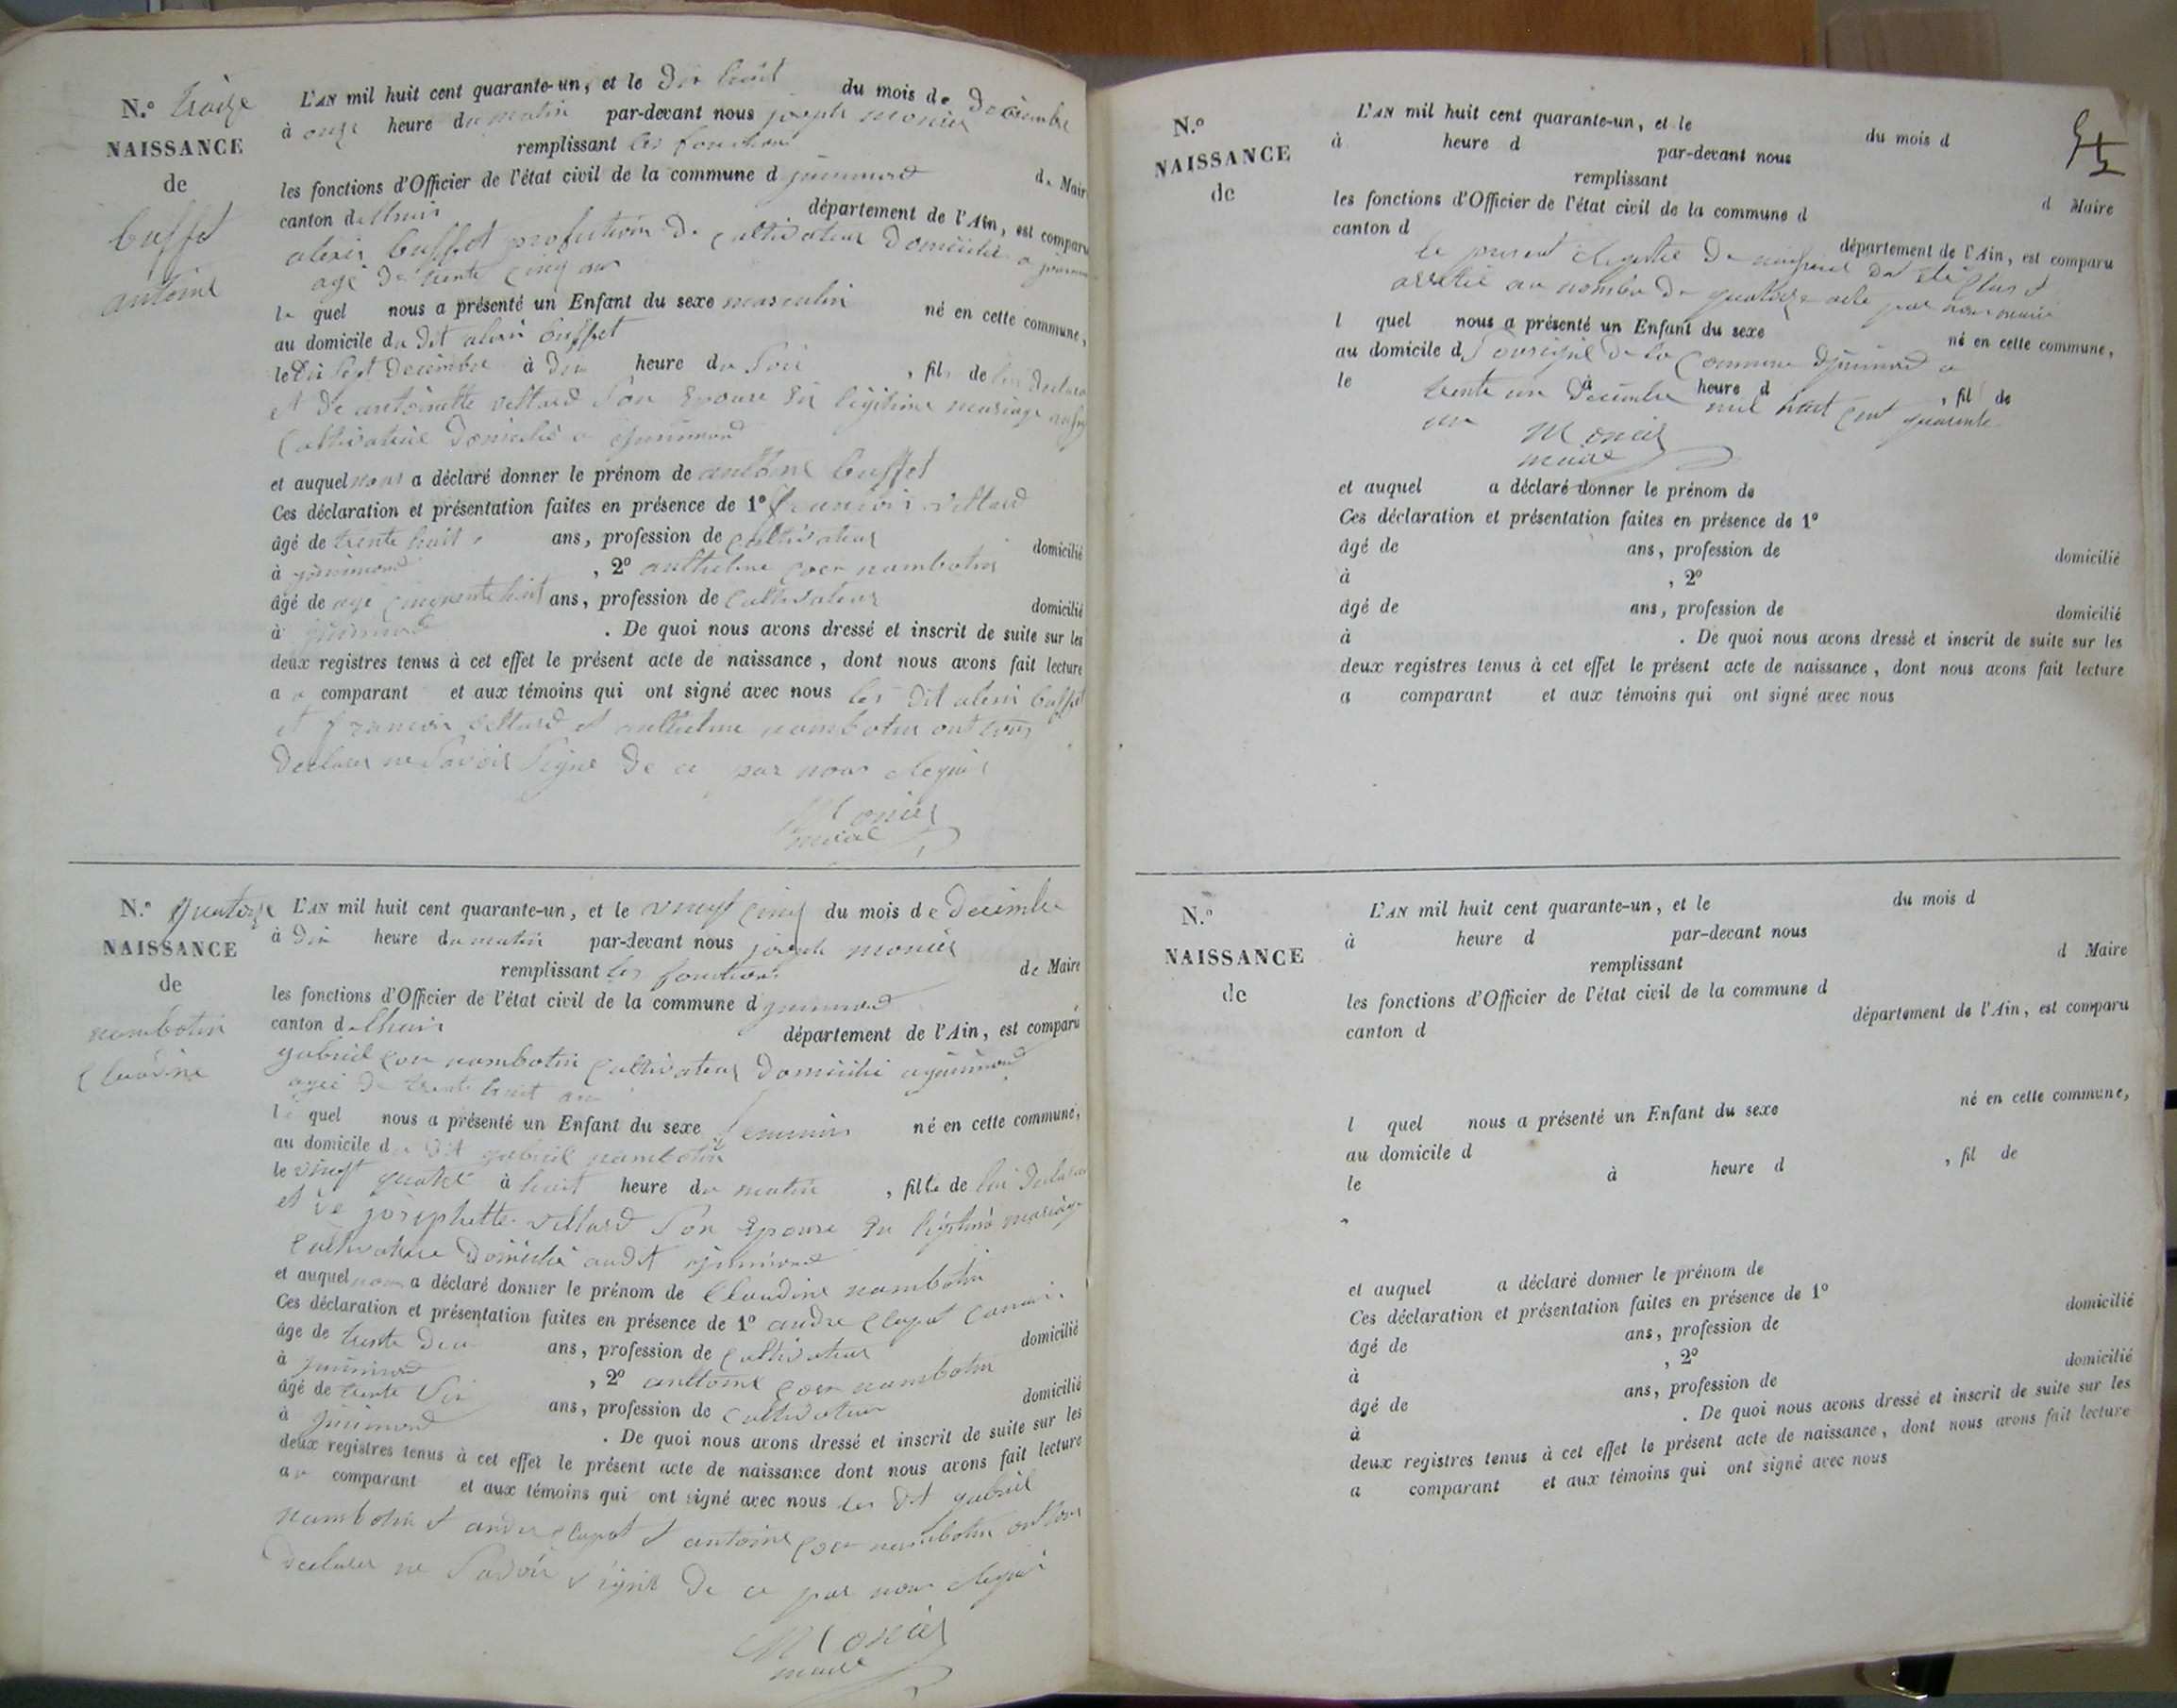 N.º treize
NAISSANCE
de
buffet
antoine
L'AN mil huit cent quarante-un, et le dix huit du mois de decembre
à onze heure du matin par-devant nous joseph monier
remplissant les fonctions de Maire
les fonctions d'Officier de l'état civil de la commune d
canton de lhuis département de l'Ain, est comparu
alexis buffet profession de cultivateur domicilié a
agé de trente cinq ans
le quel nous a présenté un Enfant du sexe masculin né en cette commune,
au domicile du dit alexis buffet
le dix sept decembre à heure du soir , fils de lui declarant
et de antoinette vettard son epouse en légitime mariage
cultivatrice domicilié a
et auquel nous a déclaré donner le prénom de antoine buffet
Ces déclaration et présentation faites en présence de 1º francois vettard
âgé de trente huit ans, profession de cultivateur domicilié
à , 2º anthelme nambotin
âgé de agé cinquante huit ans, profession de cultivateur domicilié
à . De quoi nous avons dressé et inscrit de suite sur les
deux registres tenus à cet effet le présent acte de naissance, dont nous avons fait lecture
au comparant et aux témoins qui ont signé avec nous les dit alexis buffet
et francois vettard et anthelme nambotin ont tous
declarer ne savoir signé de ce par nous requis
Monier
maire
N.º quatorze
NAISSANCE
de
nambotin
claudine
L'AN mil huit cent quarante-un, et le vingt cinq du mois de decembre
à dix heure du matin par-devant nous joseph monier
remplissant les fonctions de Maire
les fonctions d'Officier de l'état civil de la commune d
canton de lhuis département de l'Ain, est comparu
gabriel nambotin cultivateur domicilié a
agé de trente huit ans
le quel nous a présenté un Enfant du sexe feminin né en cette commune,
au domicile du dit gabriel nambotin
le vingt quatre à huit heure du matin , fille de lui declarant
et de josephette vettard son epouse en légitime mariage
cultivatrice domicilié audit
et auquel nous a déclaré donner le prénom de claudine nambotin
Ces déclaration et présentation faites en présence de 1º andre
âge de trente ans, profession de cultivateur domicilié
à , 2º antoine nambotin
âgé de trente six ans, profession de cultivateur domicilié
à . De quoi nous avons dressé et inscrit de suite sur les
deux registres tenus à cet effet le présent acte de naissance dont nous avons fait lecture
au comparant et aux témoins qui ont signé avec nous les dit gabriel
nambotin et andre et antoine nambotin ont tous
declarer ne savoir signé de ce par nous requis
Monier
maire
N.º
NAISSANCE
de
L'AN mil huit cent quarante-un, et le du mois d
à heure d par-devant nous
remplissant d Maire
les fonctions d'Officier de l'état civil de la commune d
canton d département de l'Ain, est comparu
le present registre de naissance
arretté au nombre de quatorze acte par nous maire
l quel nous a présenté un Enfant du sexe né en cette commune,
au domicile d soussigné de la commune
le à heure d , fil de
trente un decembre mil huit cent quarante
un
Monier
maire
et auquel a déclaré donner le prénom de
Ces déclaration et présentation faites en présence de 1º
âgé de ans, profession de domicilié
à , 2º
âgé de ans, profession de domicilié
à . De quoi nous avons dressé et inscrit de suite sur les
deux registres tenus à cet effet le présent acte de naissance, dont nous avons fait lecture
a comparant et aux témoins qui ont signé avec nous
N.º
NAISSANCE
de
L'AN mil huit cent quarante-un, et le du mois d
à heure d par-devant nous
remplissant d Maire
les fonctions d'Officier de l'état civil de la commune d
canton d département de l'Ain, est comparu
l quel nous a présenté un Enfant du sexe né en cette commune,
au domicile d
le à heure d , fil de
et auquel a déclaré donner le prénom de
Ces déclaration et présentation faites en présence de 1º
âgé de ans, profession de domicilié
à , 2º
âgé de ans, profession de domicilié
à . De quoi nous avons dressé et inscrit de suite sur les
deux registres tenus à cet effet le présent acte de naissance, dont nous avons fait lecture
a comparant et aux témoins qui ont signé avec nous